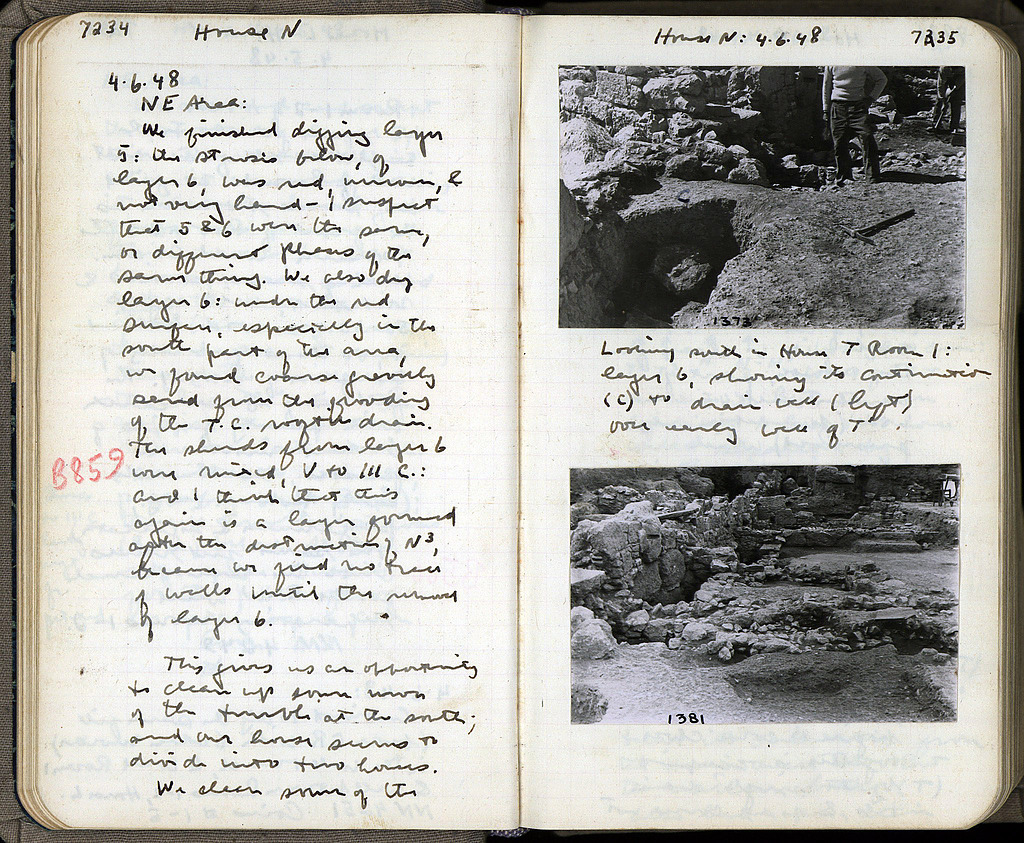 7234 House N
4.6.48
NE Area:
We finished digging layer
5: the strosis below, of
layer 6, was red, uneven, &
not very hard - I suspect
that 5 & 6 were the same,
or different phases of the
same thing. We also dug
layer 6: under the red
surface, especially in the
south part of the area,
we found coarse gravelly
sand from the flooding
of the T.C. drain.
The sherds from layer 6
were mixed, V to III C.:
and I think that this
again is a layer formed
after the destruction of N³,
because we find no trace
of walls until the removal
of layer 6.
B859
This gives us an opportunity
to clean up some more
of the tumble at the south;
and our house seems to
divide into two houses.
We clean some of the
House N: 4.6.48 7235
1373
Looking south in House T Room 1:
layer 6, showing its continuation
(c) to drain well (left)
over early well of T.
1381